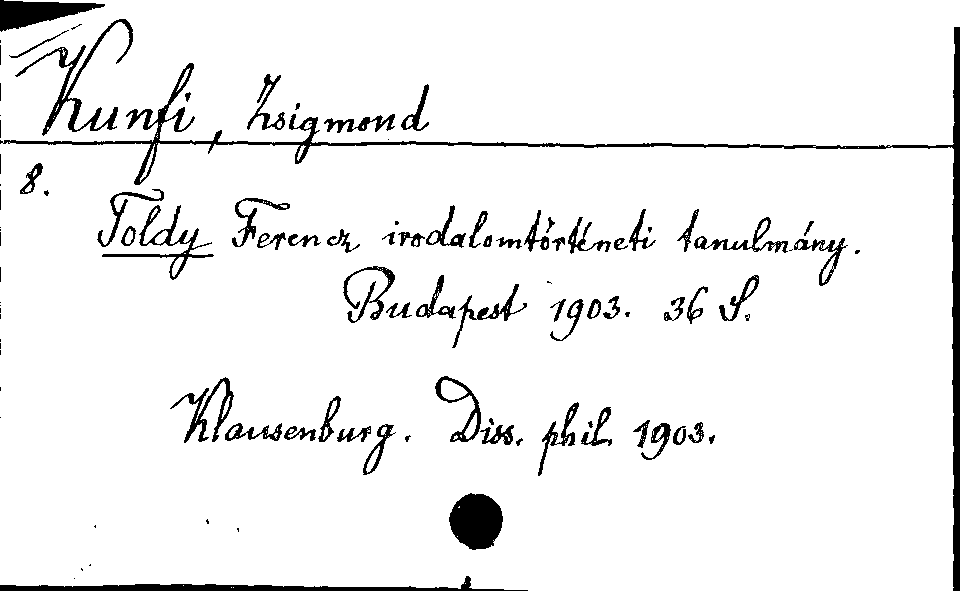 Kunfi, Zsigmond
8.
Toldy Ferencz irodalomtörténeti tanulmány.
Budapest 1903. 36 S.
Klausenburg. Diss. phil. 1903.